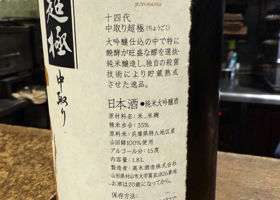 JUYONDAI
超極
中取り
十四代
中取り超極(ちょうごく)
大吟醸仕込の中で特に
醗酵が旺盛な酵を選抜・
純米醸造し、独自の殺菌
技術により貯蔵熟成
させた逸品。
日本酒●純米大吟醸酒
原材料名：米、米麹
精米歩合：35%
原料米：兵庫県特A地区産
山田錦100%使用
アルコール分：15度
内容量：1.8L
製造者：高木酒造株式会社
山形県村山市大字富並1826番地
お酒は20歳になってから。
保存方法